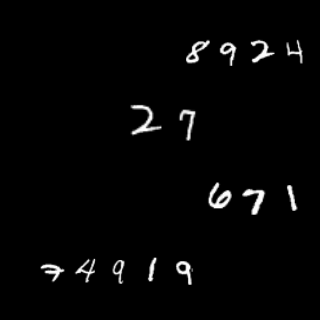 8924
27
671
74919